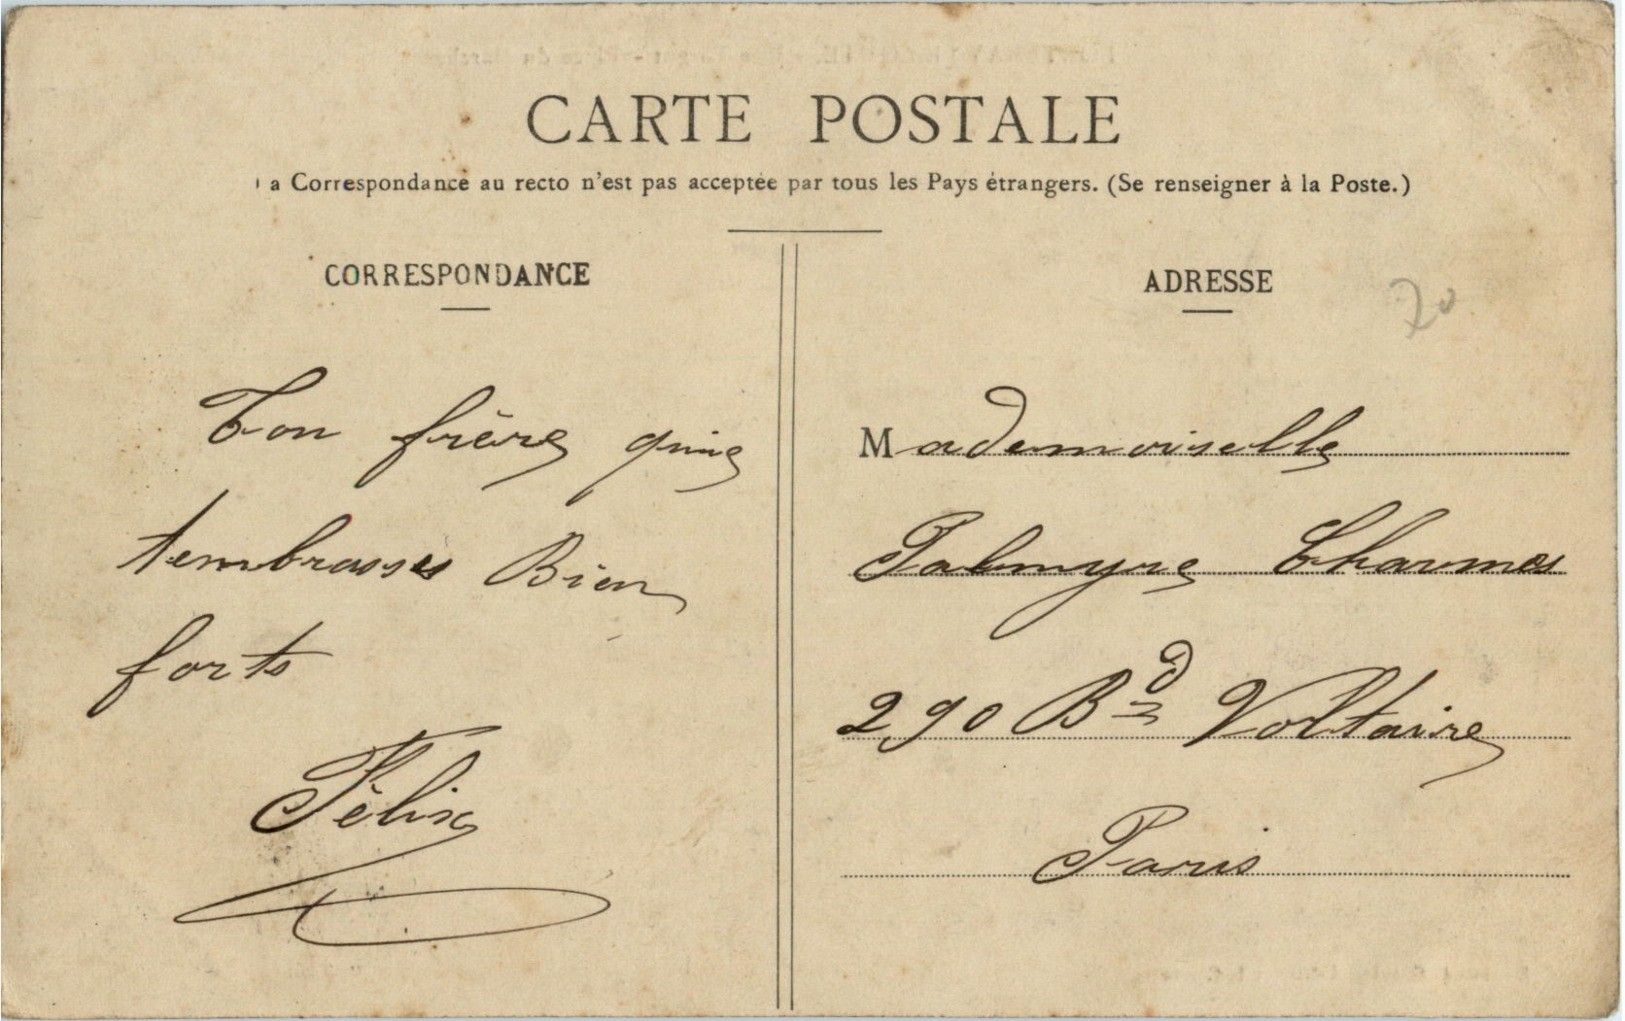 CARTE POSTALE
a Correspondance au recto n'est pas acceptée par tous les Pays étrangers. (Se renseigner à la Poste.)
CORRESPONDANCE
Ton frère
t'embrasse Bien
forts
Félix
ADRESSE
70
Mademoiselle
Palmyre Charmes
290 Bd Voltaire
Paris